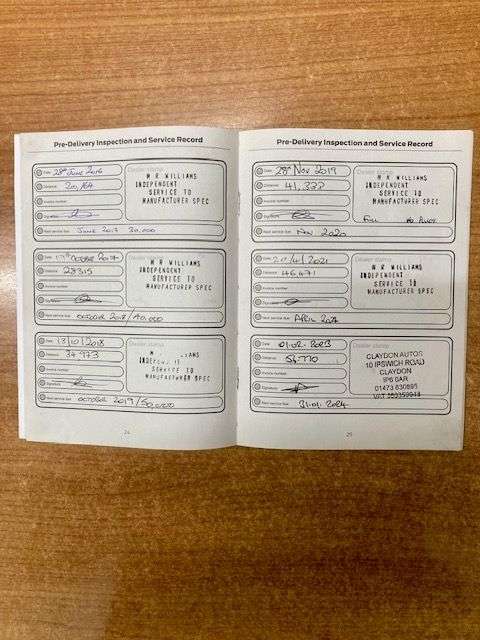 Pre-Delivery Inspection and Service Record
Date 28th June 2016
Distance
Invoice number
Signature
Next service due June 2017 30,000
Dealer stamp
M R WILLIAMS
INDEPENDENT
SERVICE TO
MANUFACTURER SPEC
Date 17th October 2017
Distance 28315
Invoice number
Signature
Next service due October 2018/40,000
Dealer stamp
M R WILLIAMS
INDEPENDENT
SERVICE TO
MANUFACTURER SPEC
Date 13/10/2018
Distance 34973
Invoice number
Signature
Next service due October 2019/50,000
Dealer stamp
M R WILLIAMS
SERVICE TO
MANUFACTURER SPEC
24
Pre-Delivery Inspection and Service Record
Date 28th Nov 2019
Distance
Invoice number
Signature
Next service due Nov 2020
Dealer stamp
M R WILLIAMS
INDEPENDENT
SERVICE TO
MANUFACTURER SPEC
Date 20/4/2021
Distance 46471
Invoice number
Signature
Next service due April 2022
Dealer stamp
M R WILLIAMS
INDEPENDENT
SERVICE TO
MANUFACTURER SPEC
Date 01.02.2023
Distance 56770
Invoice number
Signature
Next service due 31.01.2024
Dealer stamp
CLAYDON AUTOS
10 IPSWICH ROAD
CLAYDON
IP6 0AR
01473 830895
25